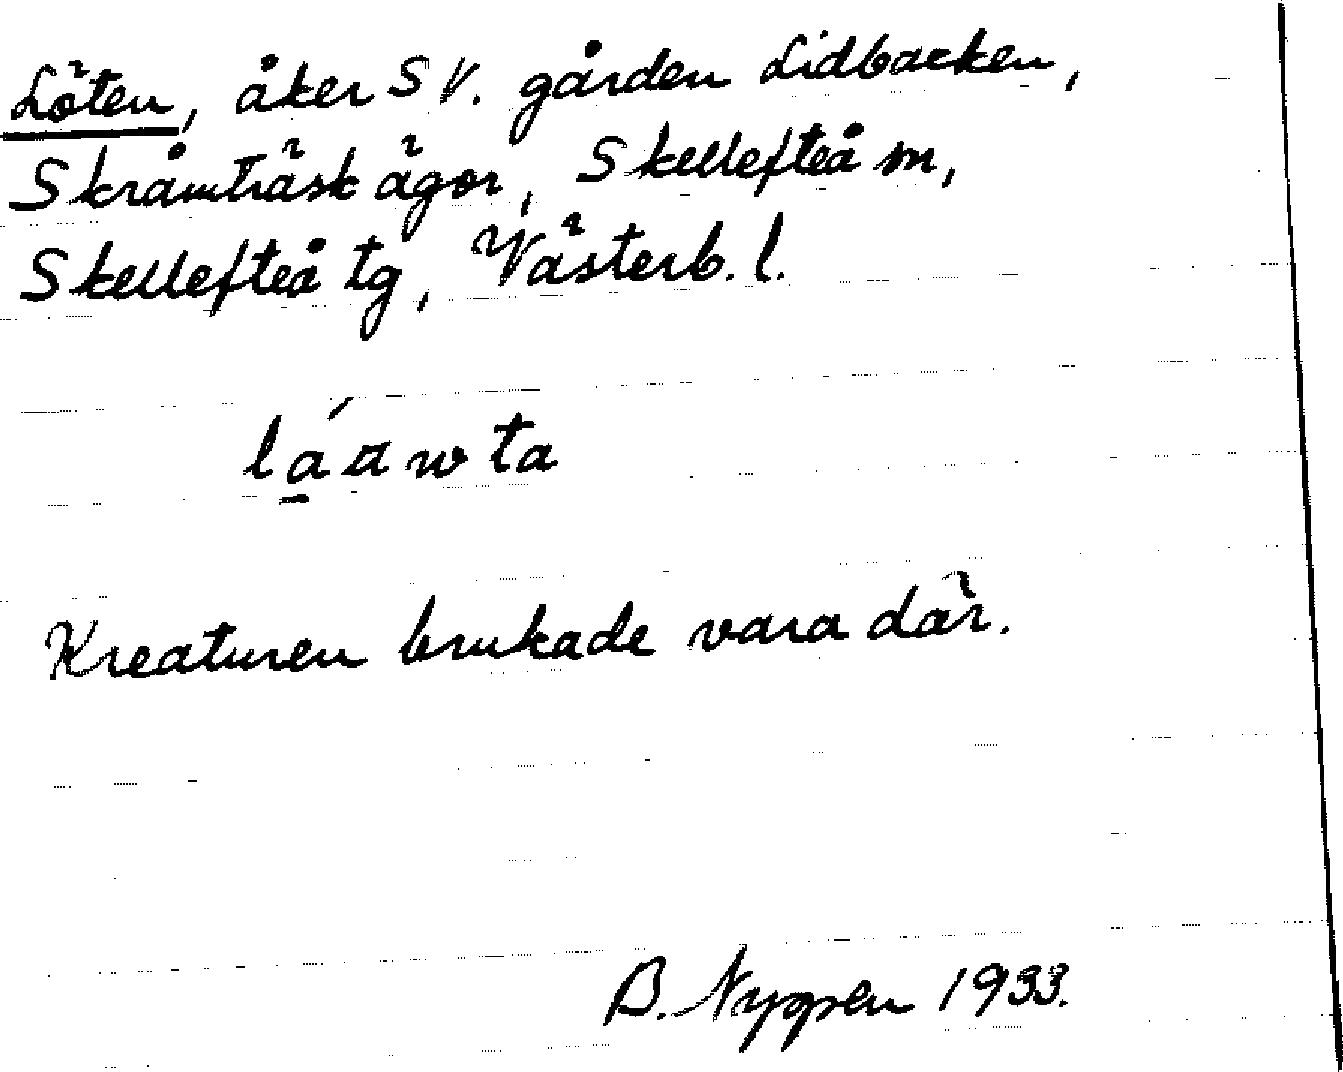 Löten, åker S V. gården Lidbacken,
Skråmträsk ägor, Skellefteå sn,
Skellefteå tg, Västerb. l.
láawta
Kreaturen brukade vara där.
B. Nygren 1933.